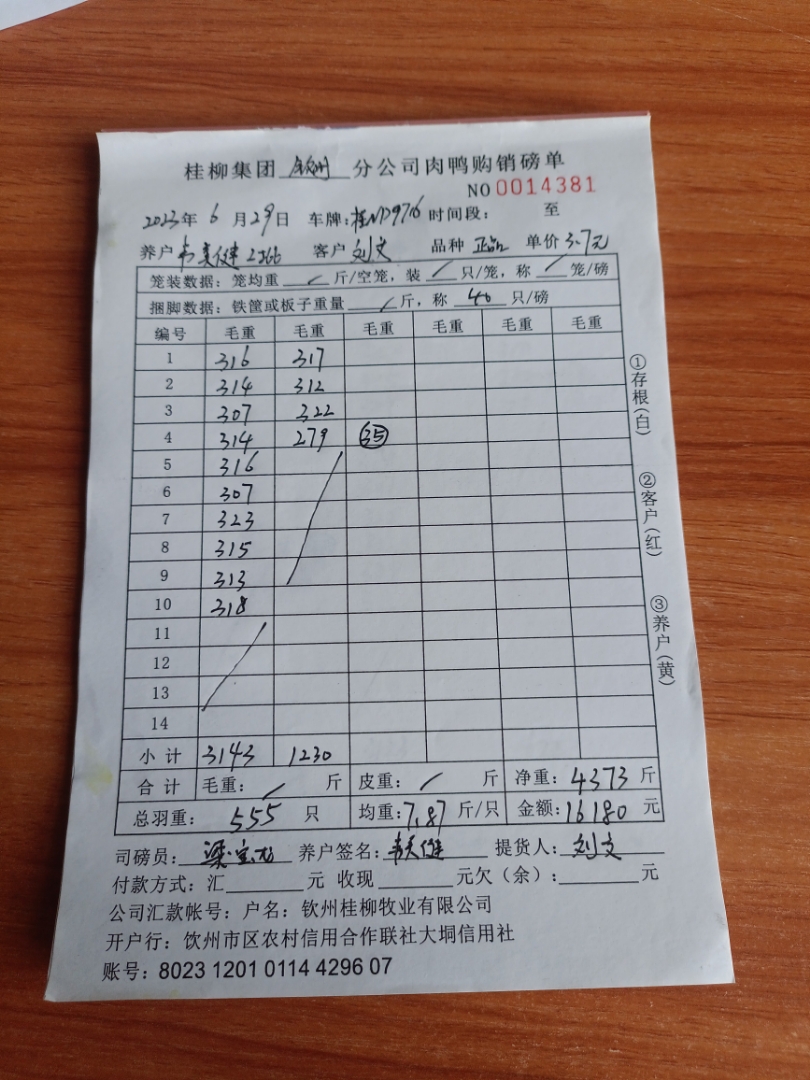 桂柳集团 钦州 分公司肉鸭购销磅单
NO 0014381
2023年 6 月 29 日 车牌: 桂ND9716 时间段: 至
养户 韦 健 2266 客户 刘文 品种 正品 单价 3.7元
笼装数据: 笼均重 / 斤/空笼, 装 / 只/笼, 称 / 笼/磅
捆脚数据: 铁筐或板子重量 / 斤, 称 40 只/磅
编号 毛重 毛重 毛重 毛重 毛重 毛重
1 316 317
2 314 312
3 307 322
4 314 279 35
5 316
6 307
7 323
8 315
9 313
10 318
11
12
13
14
小 计 3143 1230
合 计 毛重: / 斤 皮重: / 斤 净重: 4373 斤
总羽重: 555 只 均重: 7.87 斤/只 金额: 16180 元
司磅员: 梁宝龙 养户签名: 韦 健 提货人: 刘文
付款方式: 汇 元 收现 元欠(余): 元
公司汇款帐号: 户名: 钦州桂柳牧业有限公司
开户行: 饮州市区农村信用合作联社大垌信用社
账号: 8023 1201 0114 4296 07
①存根(白)
②客户(红)
③养户(黄)